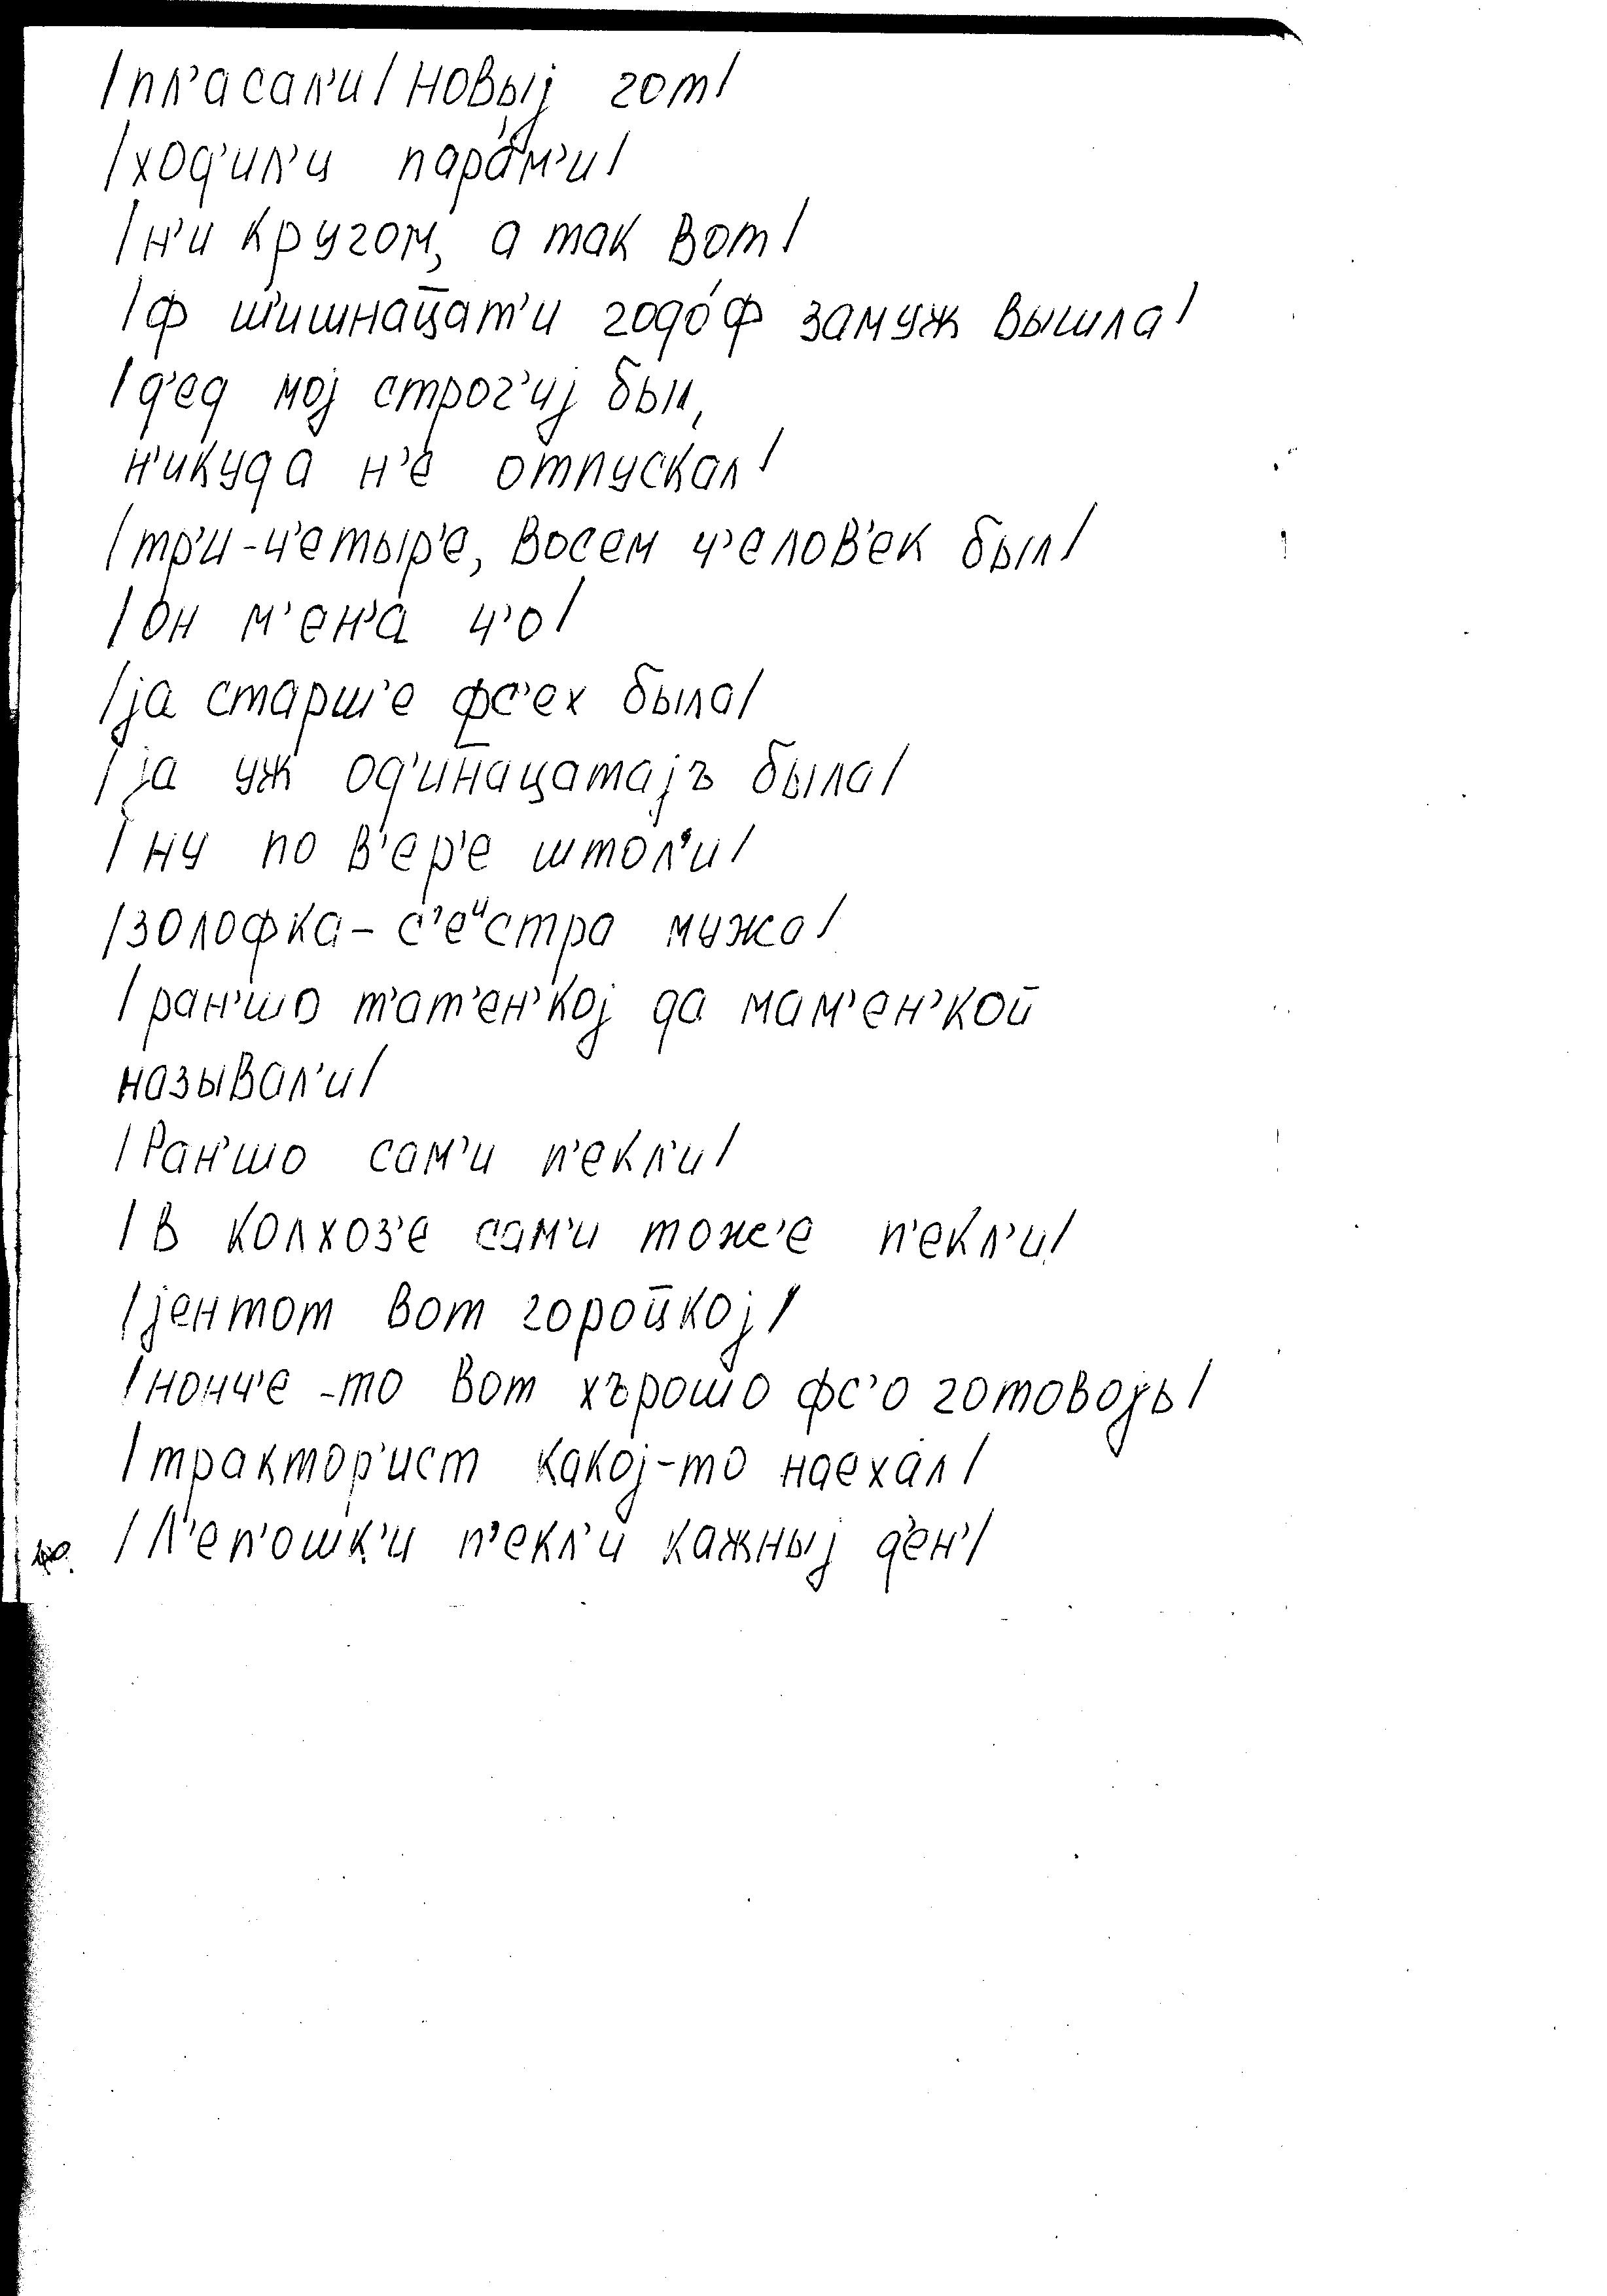 /пл’асал’и/ новыј гот/
/ход’ил’и пара́м’и/
/н’и кругом, а так вот/
/ф ш’ишнац̄ат’и годо́ф замуж вышла/
/д’ед мој строг’иј был,
н’икуда н’е отпускал/
/тр’и-ч’етыр’е, восем ч’елов’ек был/
/он м’ен’а ч’о/
/ја старш’е фс’ех была/
/ја уж од’ин̄ацатајъ была/
/ну по в’ер’е штол’и/
/золофка – с’еᶦстра мужа/
/ран’шо т’ат’ен’кој да мам’ен’кой
называл’и/
/Ран’шо сам’и п’екл’и/
/в колхоз’е сам’и тож’е п’екл’и/
/јентот вот гороц̄кој/
/нонч’е -то вот хърошо фс’о готовојь/
/трактор’ист какој-то наехал/
/Л’еп’ошк’и п’екл’и кажныј д’ен’/